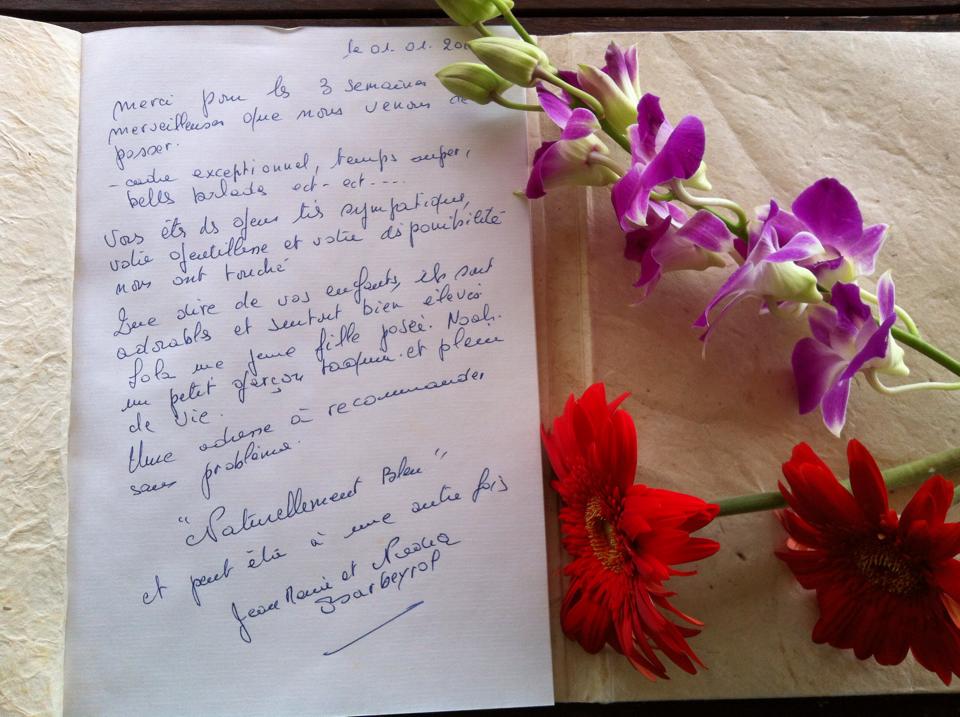 le 01.01.20
Merci pour les 3 semaines
merveilleuses que nous venons de
passer.
- cadre exceptionnel, temps super,
belles balades ect- ect----
Vous êtes ds gens très sympatique,
votre gentillesse et votre disponibilité
nous ont touché
Que dire de vos enfants, ils sont
adorables et surtout bien élevés
Lola une jeune fille posée. Noah.
un petit garçon taquin. et plein
de vie.
Une adresse à recommander
sans problème.
"Naturellement Bleu"
et peut être à une autre fois
Jean Marie et
Barbeyrot